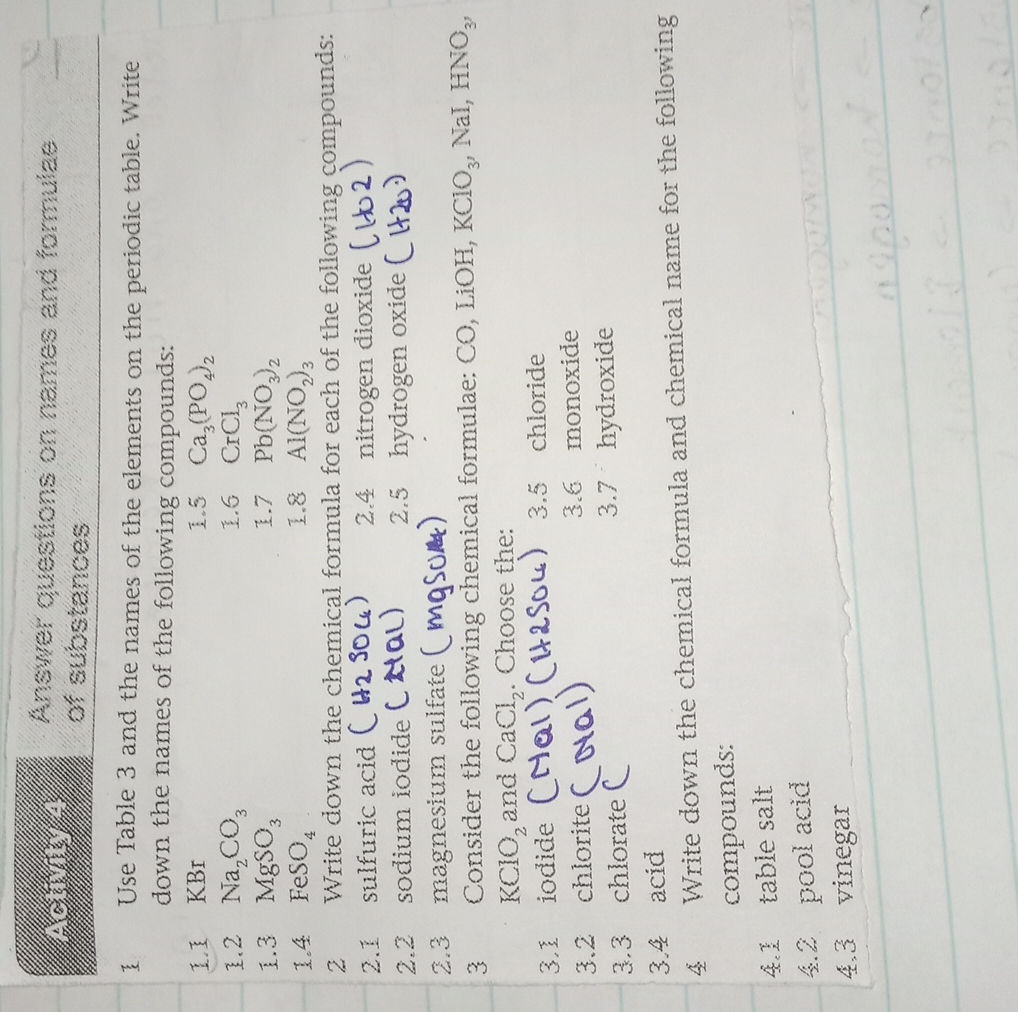 Activity 4 Answer questions on names and formulae
of substances
1 Use Table 3 and the names of the elements on the periodic table. Write
down the names of the following compounds:
1.1 KBr 1.5 Ca₃(PO₄)₂
1.2 Na₂CO₃ 1.6 CrCl₃
1.3 MgSO₃ 1.7 Pb(NO₃)₂
1.4 FeSO₄ 1.8 Al(NO₂)₃
2 Write down the chemical formula for each of the following compounds:
2.1 sulfuric acid (H2SO4) 2.4 nitrogen dioxide
2.2 sodium iodide 2.5 hydrogen oxide (H20)
2.3 magnesium sulfate
3 Consider the following chemical formulae: CO, LiOH, KClO₃, NaI, HNO₃,
KClO₂ and CaCl₂. Choose the:
3.1 iodide (H2SO4) 3.5 chloride
3.2 chlorite 3.6 monoxide
3.3 chlorate ( 3.7 hydroxide
3.4 acid
4 Write down the chemical formula and chemical name for the following
compounds:
4.1 table salt
4.2 pool acid
4.3 vinegar